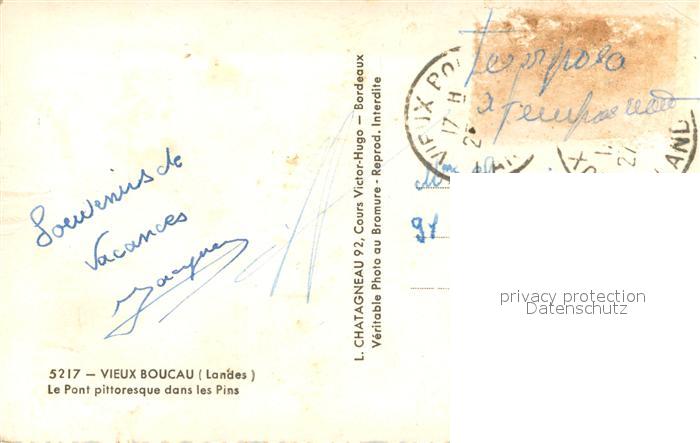 Souvenirs de
Vacances
Jacques
5217 — VIEUX BOUCAU ( Landes )
Le Pont pittoresque dans les Pins
L. CHATAGNEAU 92, Cours Victor-Hugo — Bordeaux
Véritable Photo au Bromure - Reprod. Interdite
VIEUX BO
17 H
LAND
27
Mme
91
privacy protection
Datenschutz